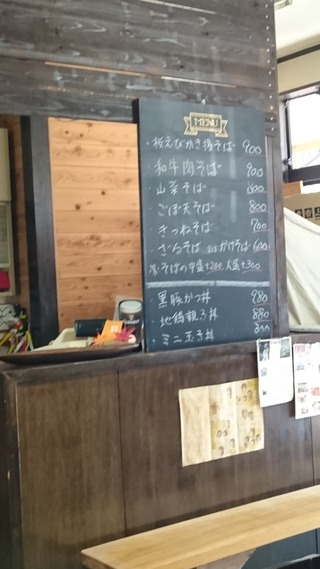 MENU
・桜えびかき揚そば 900
・和牛肉そば 900
・山菜そば 800
・ごぼ天そば 800
・きつねそば 700
・ざるそば かけそば 600
そばの中盛+200 大盛+300
・黒豚かつ丼 980
・地鶏親子丼 880
・ミニ玉子丼 300